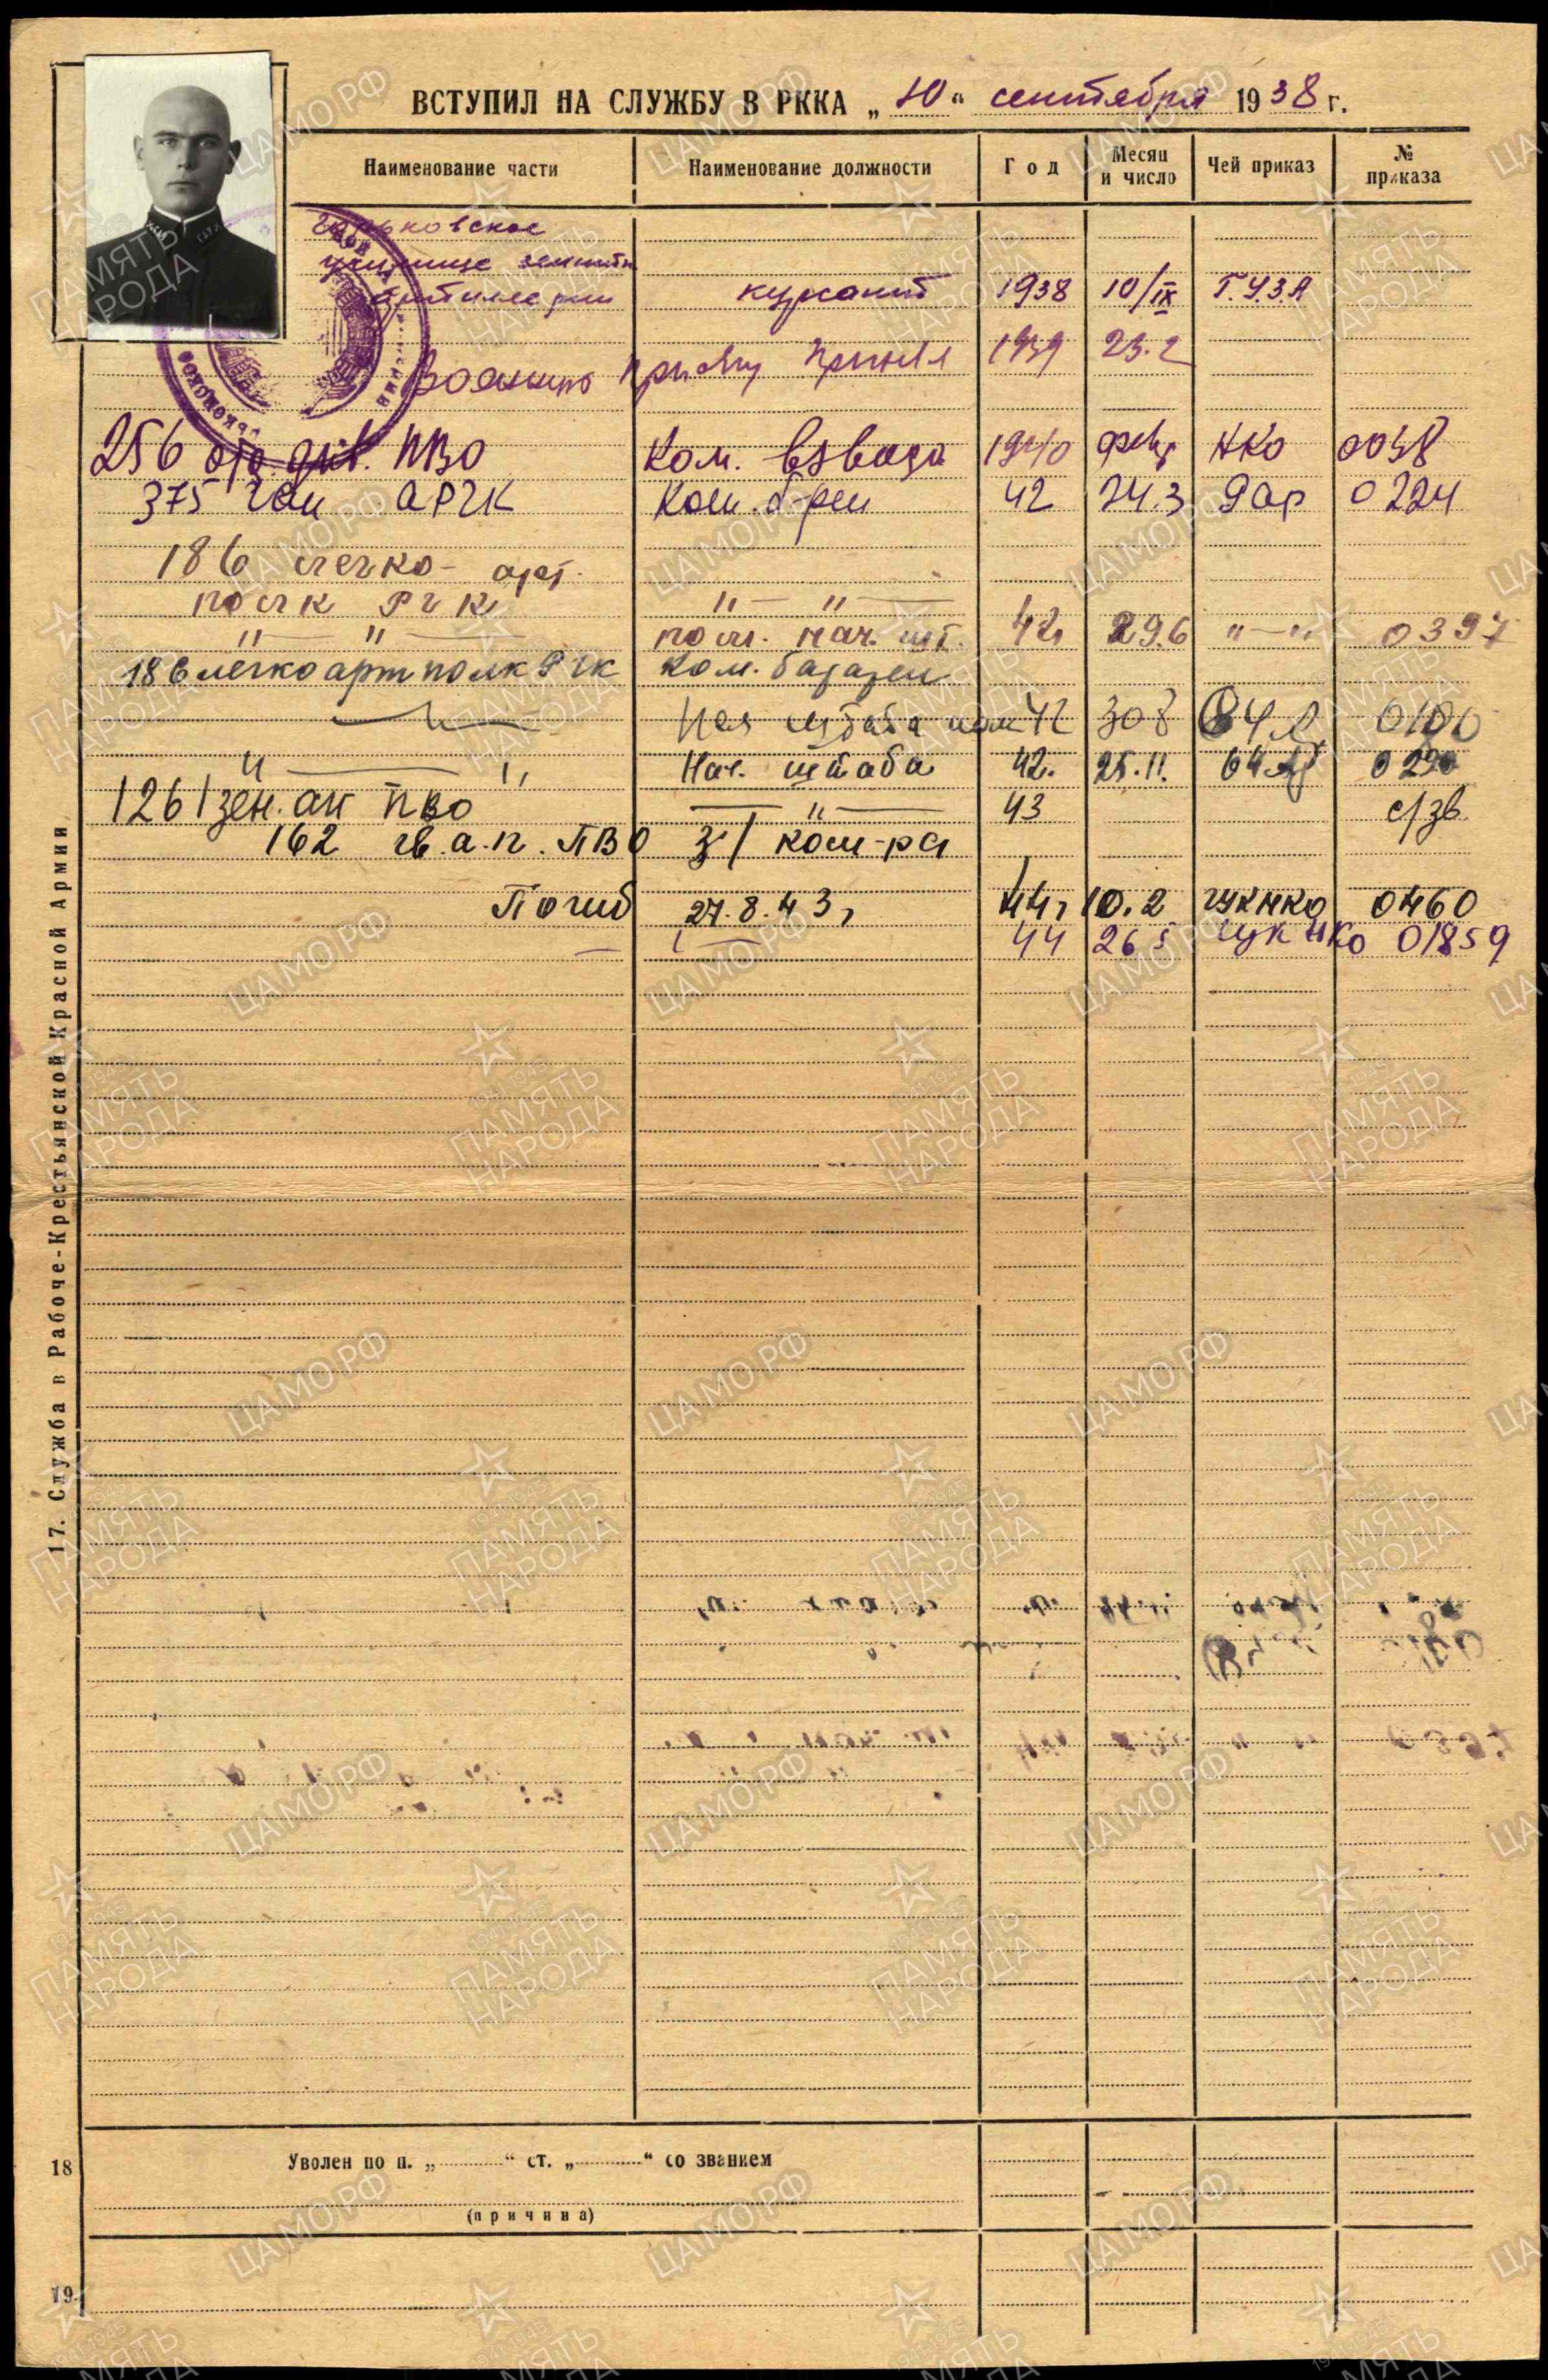 ВСТУПИЛ НА СЛУЖБУ В РККА „10“ сентября 1938 г.
Наименование части Наименование должности Год Месяц и число Чей приказ № приказа
Горьковское
училище зенитн
артиллерии курсант 1938 10/IX Г.У.З.А
Военную присягу принял 1939 23.2
256 отд. див. ПВО Ком. взвода 1940 НКО 0038
375 гап АРГК Ком. б-реи 42 24.3 0224
186 легко-арт.
полк РГК "—"—
"—"— пом. нач. шт. 42 29.6 "—" 0397
186 легко арт полк РГК Ком. батареи
Нач штаба 42 30 8 64 А 0100
"—" Нач. штаба 42. 25.11. 64 А 0290
1261 зен. ап ПВО —"— 43 с/зв
162 гв. а.п. ПВО З/ ком-ра
Погиб 27.8.43г 44г 10.2 ГУКНКО 0460
44 26 5 ГУК НКО 01859
17. Служба в Рабоче-Крестьянской Красной Армии
18 Уволен по п. „“ ст. „“ со званием
(причина)
19.
ЦАМО.РФ
ПАМЯТЬ НАРОДА
1941-1945